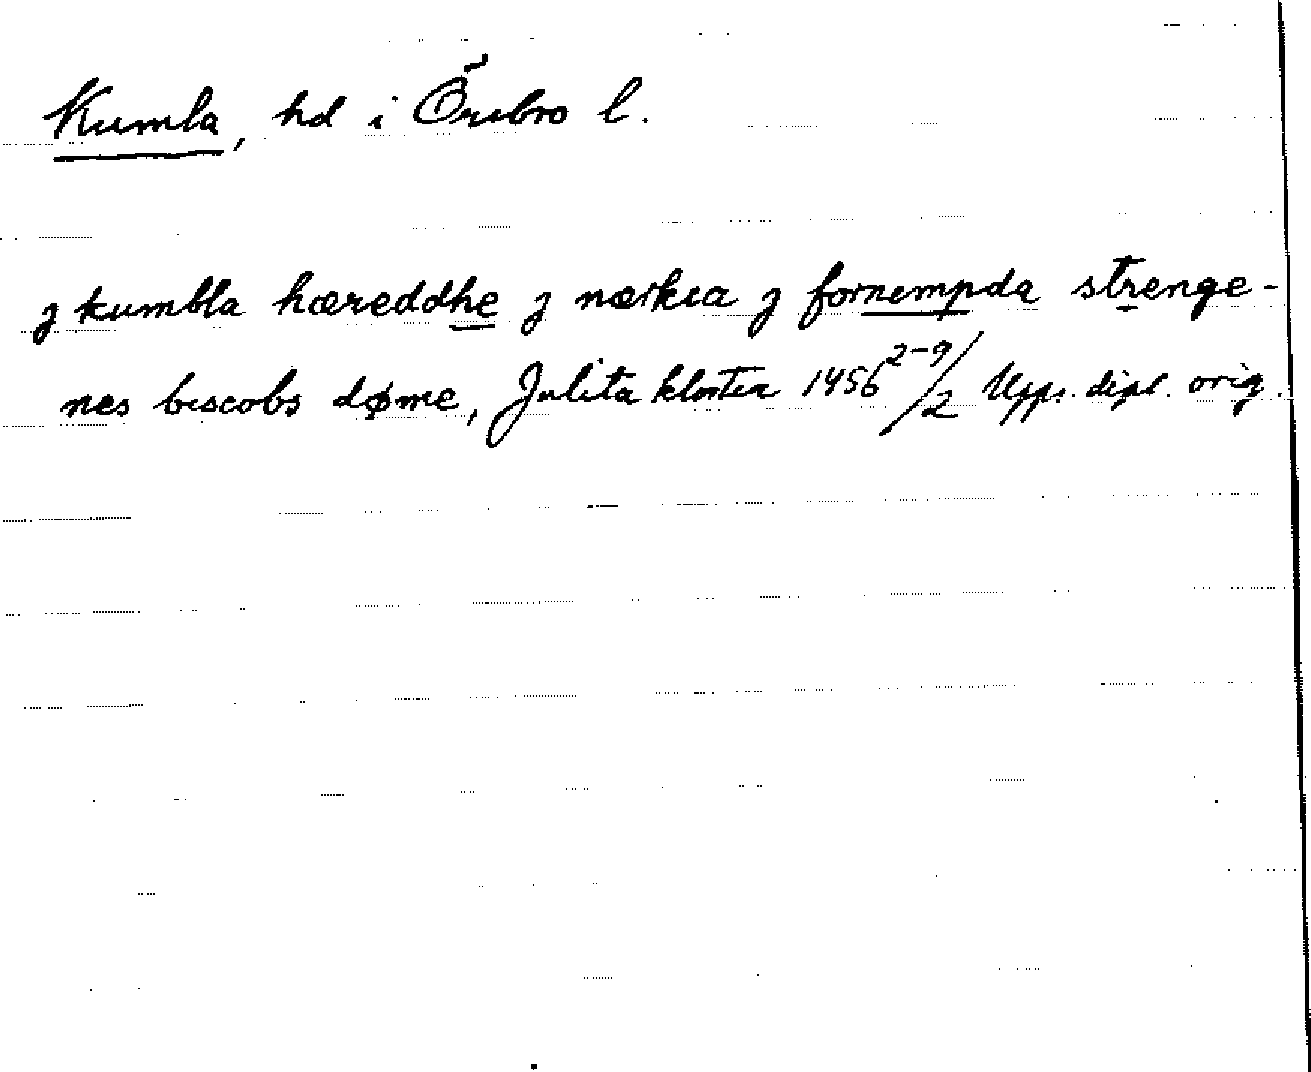 Kumla, hd i Örebro l.
j kumbla hæreddhe j nærkea j fornempda strenge-
nes bescobs døme, Julita kloster 1456 2-9/2 Upps. dipl. orig.